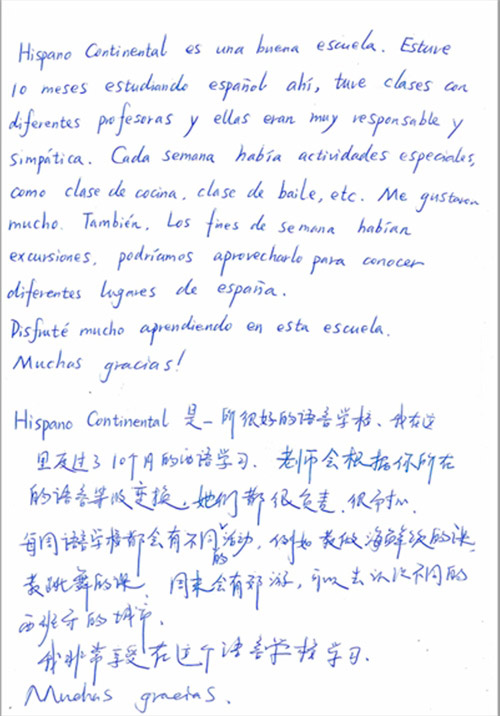 Hispano Continental es una buena escuela. Estuve
10 meses estudiando español ahí, tuve clases con
diferentes profesoras y ellas eran muy responsable y
simpática. Cada semana había actividades especiales,
como clase de cocina, clase de baile, etc. Me gustaron
mucho. También, Los fines de semana habían
excursiones, podríamos aprovecharlo para conocer
diferentes lugares de españa.
Disfruté mucho aprendiendo en esta escuela.
Muchas gracias!
Hispano Continental 是一所很好的语言学校、我在这
里度过了10个月的语学习. 老师会根据你所在
的语言等级变换,她们都很负责,很
每周语言学校都会有不同的活动,例如教做海鲜饭的课,
教跳舞的课, 周末会有郊游,可以去认识不同的
西班牙的城市.
我非常享受在这个语言学校学习.
Muchas gracias.